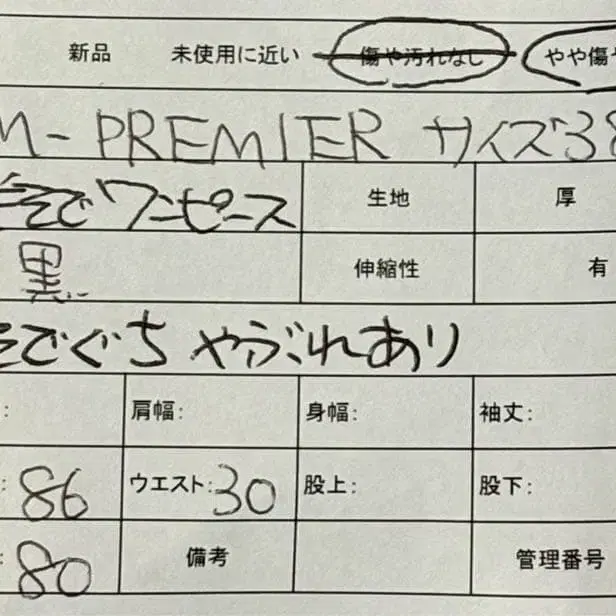 新品 未使用に近い 傷や汚れなし やや傷
M-PREMIER サイズ38
そでワンピース 生地 厚
黒 伸縮性 有
そでぐち やぶれあり
: 肩幅: 身幅: 袖丈:
: 86 ウエスト: 30 股上: 股下:
: 80 備考 管理番号